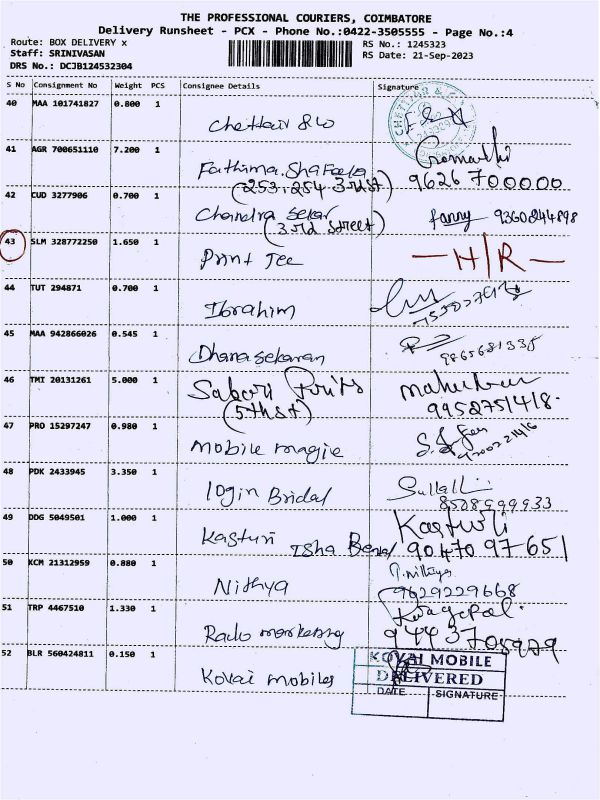 THE PROFESSIONAL COURIERS, COIMBATORE
Delivery Runsheet - PCX - Phone No.:0422-3505555 - Page No.:4
Route: BOX DELIVERY x RS No.: 1245323
Staff: SRINIVASAN RS Date: 21-Sep-2023
DRS No.: DCJB124532304
S No Consignment No Weight PCS Consignee Details Signature
40 MAA 101741827 0.800 1
Chettair & Co
41 AGR 700651110 7.200 1
Fathima. Shafeela
(253.254 3rd st) 9626700000
42 CUD 3277906 0.700 1
Chandra Sekar
(3rd street)
43 SLM 328772250 1.650 1
Print Tee — H/R —
44 TUT 294871 0.700 1
Ibrahim
45 MAA 942866026 0.545 1
Dhanasekaran 9865681335
46 TMI 20131261 5.000 1
Sabari Fruits
(5th st) 9952751418.
47 PRO 15297247 0.980 1
mobile magic
48 PDK 2433945 3.350 1
login Bridal 8508999933
49 DDG 5049501 1.000 1
Kasturi Isha 9047097651
50 KCM 21312959 0.880 1
Nithya 9629229668
51 TRP 4467510 1.330 1
Rado marketing
52 BLR 560424811 0.150 1
Kovai mobiles
KOVAI MOBILE
DELIVERED
DATE SIGNATURE